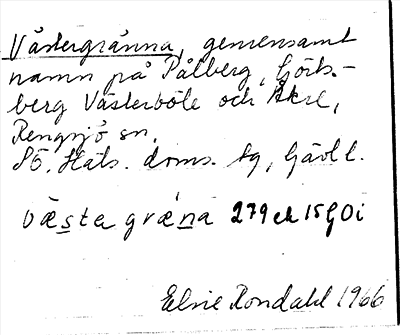 Västergränna, gemensamt
namn på Pålberg, Görts-
berg Västerböle och Åkre,
Rengsjö sn.
SÖ. Häls. doms. tg, Gävl l.
västa græ´na 279 ek 15 G0i
Elsie Rondahl 1966